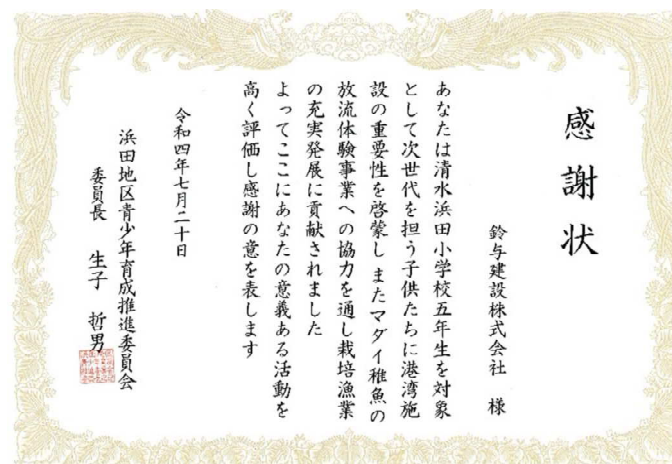 感謝状
鈴与建設株式会社 様
あなたは清水浜田小学校五年生を対象
として次世代を担う子供たちに港湾施
設の重要性を啓蒙しまたマダイ稚魚の
放流体験事業への協力を通し栽培漁業
の充実発展に貢献されました
よってここにあなたの意義ある活動を
高く評価し感謝の意を表します
令和四年七月二十日
浜田地区青少年育成推進委員会
委員長 生子 哲男